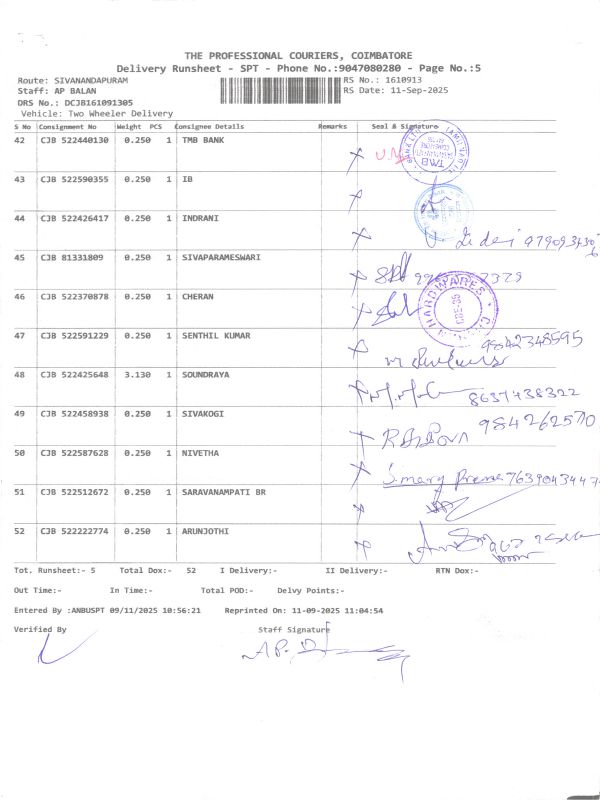 THE PROFESSIONAL COURIERS, COIMBATORE
Delivery Runsheet - SPT - Phone No.:9047080280 - Page No.:5
Route: SIVANANDAPURAM RS No.: 1610913
Staff: AP BALAN RS Date: 11-Sep-2025
DRS No.: DCJB161091305
Vehicle: Two Wheeler Delivery
S No Consignment No Weight PCS Consignee Details Remarks Seal & Signature
42 CJB 522440130 0.250 1 TMB BANK
TMB
43 CJB 522590355 0.250 1 IB
44 CJB 522426417 0.250 1 INDRANI
45 CJB 81331809 0.250 1 SIVAPARAMESWARI
46 CJB 522370878 0.250 1 CHERAN
HARDWARES
CBE-35
47 CJB 522591229 0.250 1 SENTHIL KUMAR 9842348595
48 CJB 522425648 3.130 1 SOUNDRAYA 8637438322
49 CJB 522458938 0.250 1 SIVAKOGI 984262570
50 CJB 522587628 0.250 1 NIVETHA
S.mary 7639043447
51 CJB 522512672 0.250 1 SARAVANAMPATI BR
52 CJB 522222774 0.250 1 ARUNJOTHI
Tot. Runsheet:- 5 Total Dox:- 52 I Delivery:- II Delivery:- RTN Dox:-
Out Time:- In Time:- Total POD:- Delvy Points:-
Entered By :ANBUSPT 09/11/2025 10:56:21 Reprinted On: 11-09-2025 11:04:54
Verified By Staff Signature